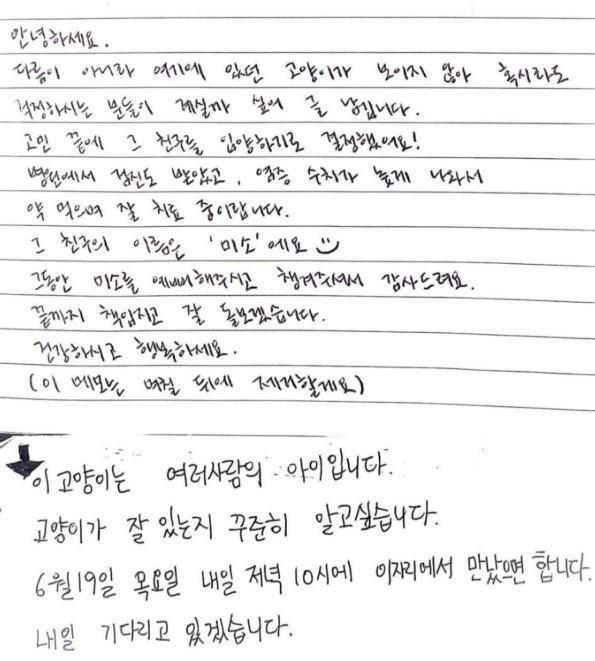 안녕하세요.
다름이 아니라 여기에 있던 고양이가 보이지 않아 혹시라도
걱정하시는 분들이 계실까 싶어 글 남깁니다.
고민 끝에 그 친구를 입양하기로 결정했어요!
병원에서 검진도 받았고, 염증 수치가 높게 나와서
약 먹으며 잘 치료 중이랍니다.
그 친구의 이름은 '미소'에요
그동안 미소를 예뻐해주시고 챙겨주셔서 감사드려요.
끝까지 책임지고 잘 돌보겠습니다.
건강하시고 행복하세요.
(이 메모는 며칠 뒤에 제거할게요)
이 고양이는 여러사람의 아이입니다.
고양이가 잘 있는지 꾸준히 알고싶습니다.
6월19일 목요일 내일 저녁 10시에 이자리에서 만났으면 합니다.
내일 기다리고 있겠습니다.